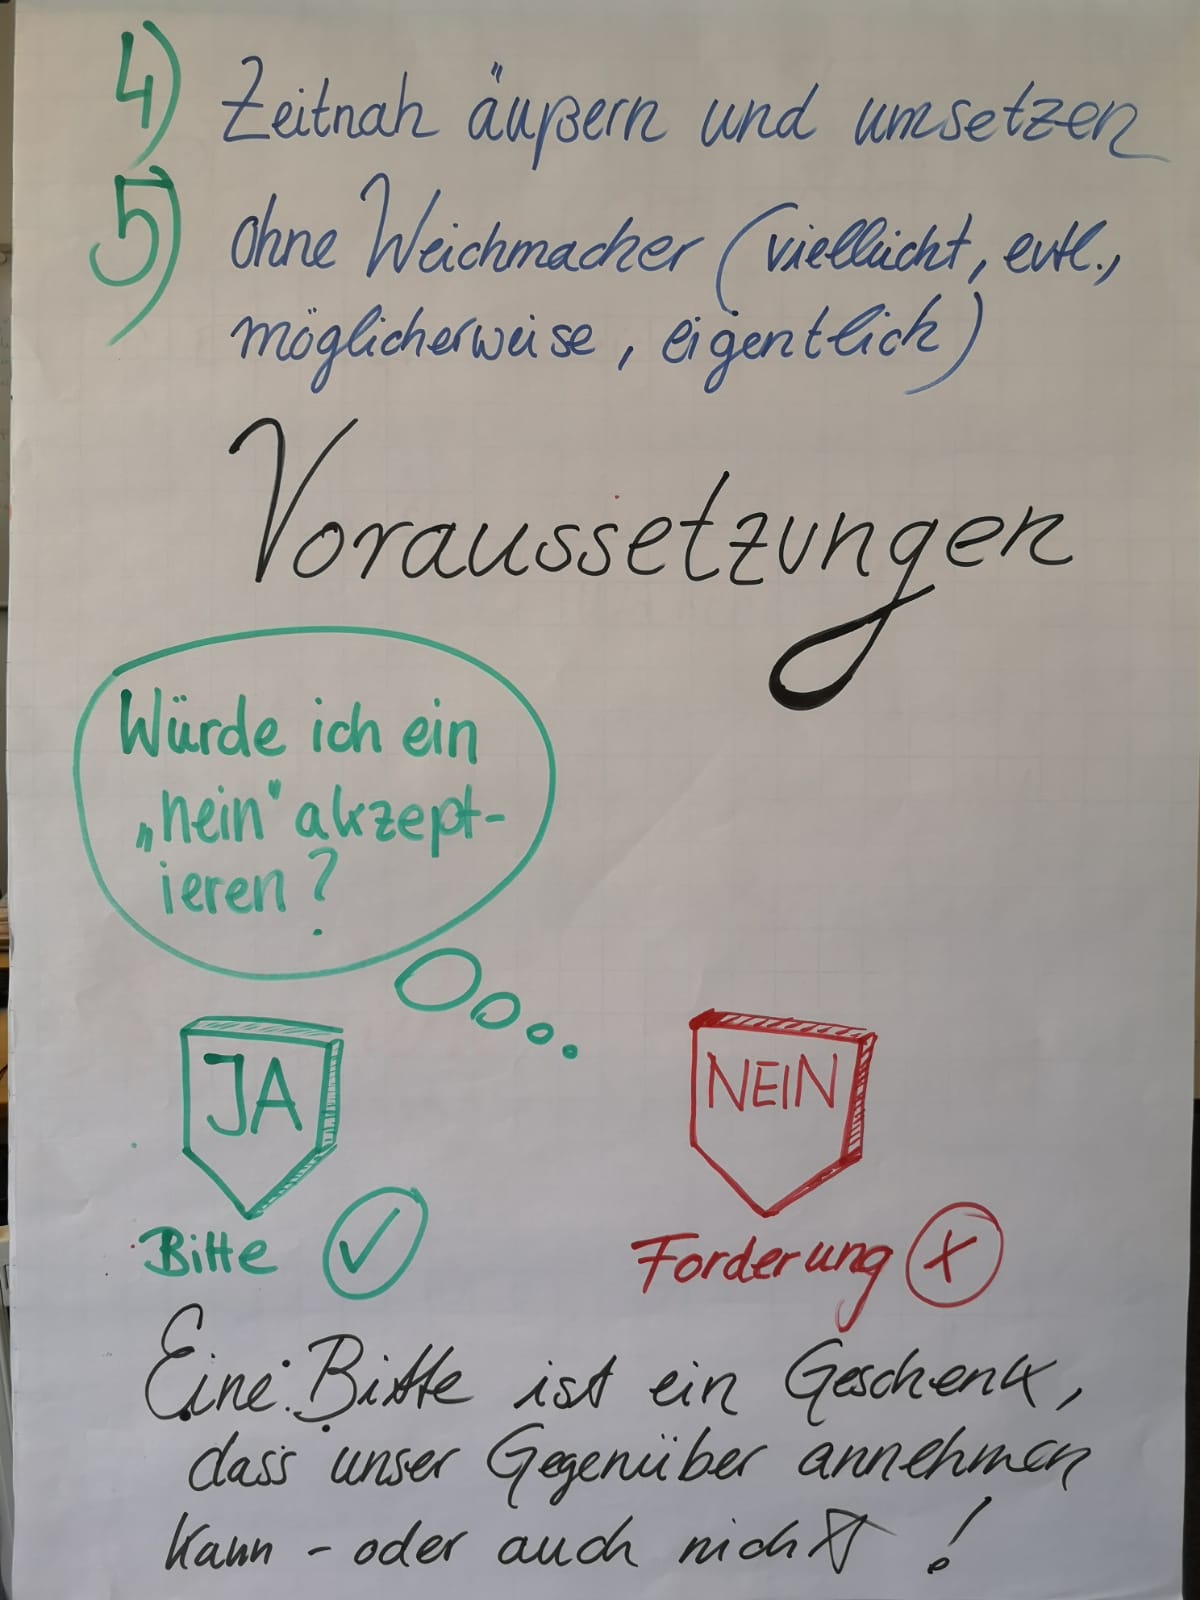 4) Zeitnah äußern und umsetzen
5) ohne Weichmacher (vielleicht, evtl.,
möglicherweise, eigentlich)
Voraussetzungen
Würde ich ein
„nein“ akzept-
ieren?
JA
NEIN
Bitte
Forderung
Eine Bitte ist ein Geschenk,
dass unser Gegenüber annehmen
kann - oder auch nicht!